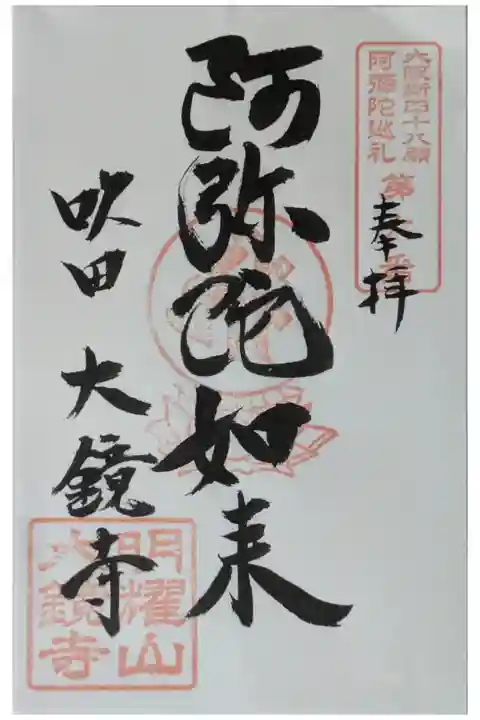 大阪新四十八願
阿彌陀巡礼 第番
奉拝
阿弥陀如来
吹田 大鏡寺
明耀山
大鏡寺